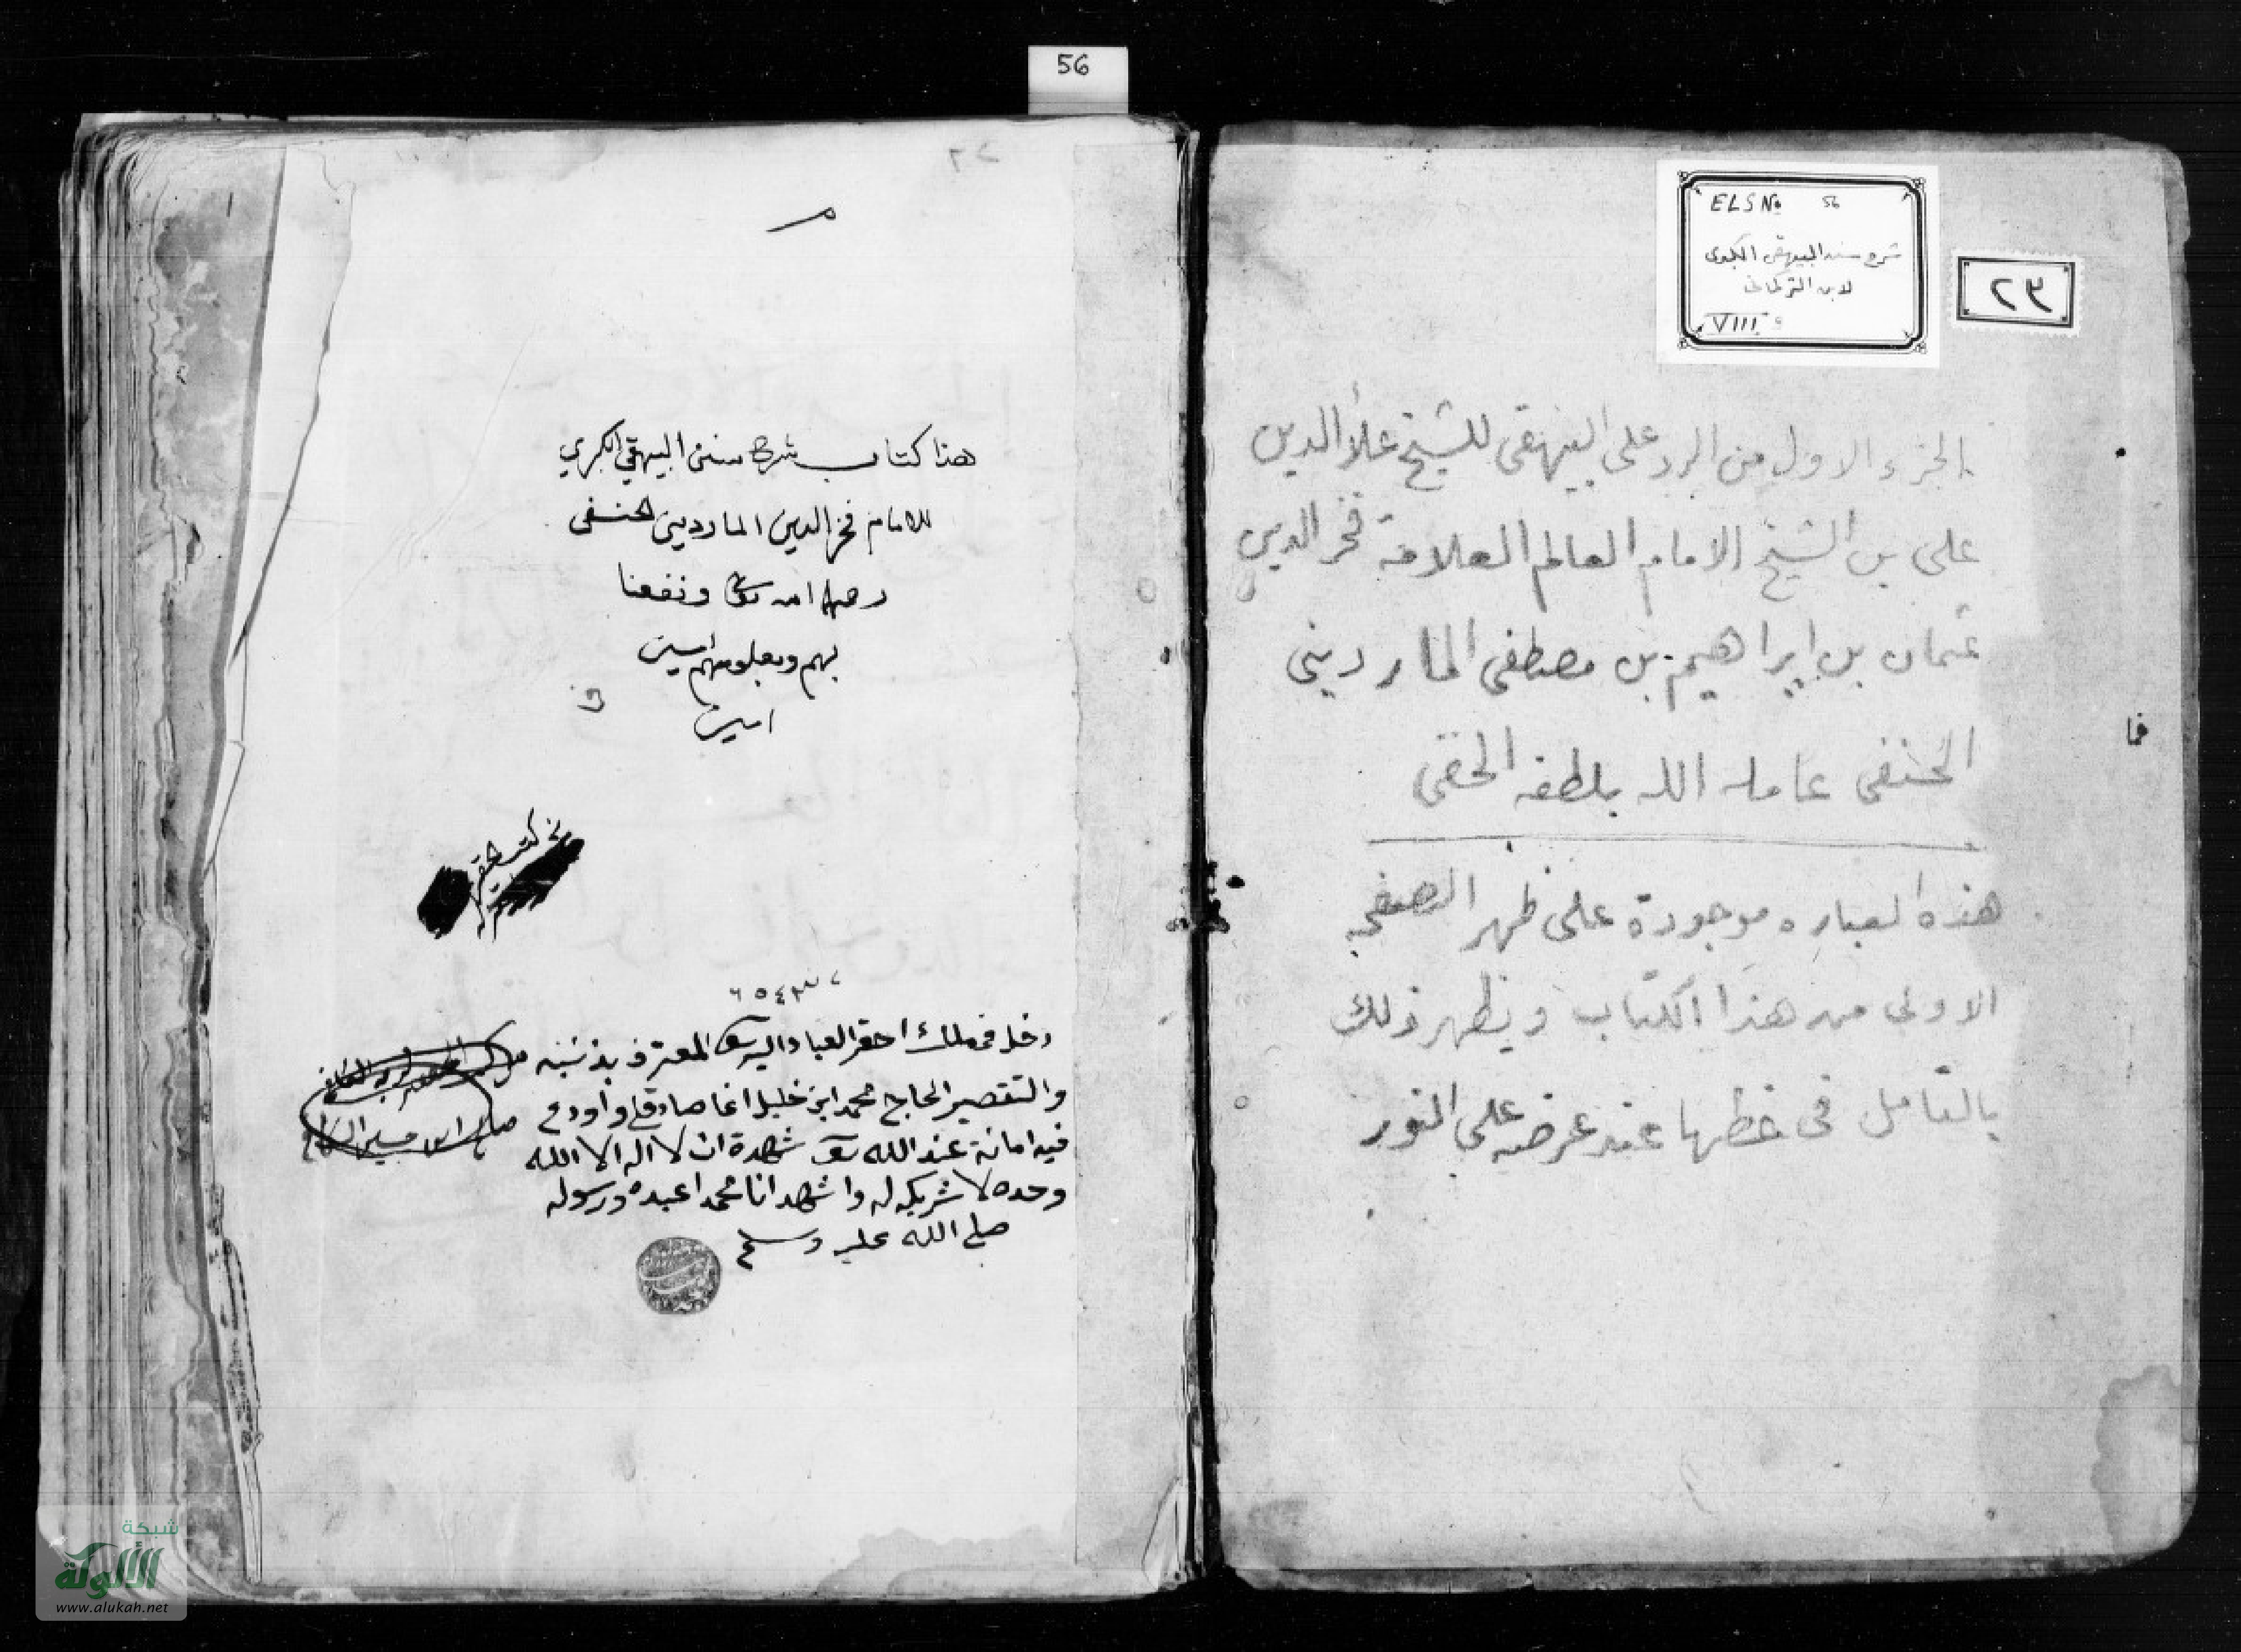 56
ELS No 56
شرح سنن البيهقي الكبرى
لابن التركماني
VIII
٢٣
الجزء الاول من الرد على البيهقى للشيخ علأ الدين
على بن الشيخ الامام العالم العلامة فخر الدين
عثمان بن ابراهيم بن مصطفى الماردينى
الحنفى عامله الله بلطفه الخفى
هذه العباره موجودة على ظهر الصفحه
الاولى من هذا الكتاب ويظهر ذلك
بالتامل فى خطها عند عرضه على النور
فا
هذا كتاب شرح سنن البيهقي الكبري
للامام فخر الدين الماردينى الحنفى
رحمهم الله تعالى ونفعنا
بهم وبعلومهم امين
امين
من كتب الفقير
دخل فى ملك احقر العباد اليه تعالى المعترف بذنبه
والتقصير الحاج محمد ابن خليل اغا صادقلي واودع
فيه امانة عند الله تعالى شهدة ان لا اله الا الله
وحده لا شريك له واشهد انا محمدا عبده ورسوله
صلى الله عليه وسلم
شبكة
الألوكة
www.alukah.net